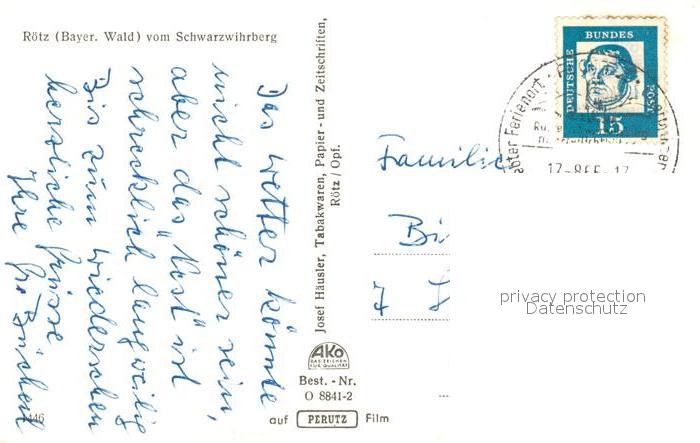 Rötz (Bayer. Wald) vom Schwarzwihrberg
Das Wetter könnte
nicht schöner sein,
aber das "Nest" ist
schrecklich langweilig
Bis zum Wiedersehen
herzliche Grüsse
Ihre
446
Josef Häusler, Tabakwaren, Papier- und Zeitschriften,
Rötz / Opf.
AKO
DAS ZEICHEN
FÜR QUALITÄT
Best. - Nr.
O 8841-2
auf PERUTZ Film
DEUTSCHE BUNDES POST
15
ebter Ferienort
Familie
Bi
7
privacy protection
Datenschutz